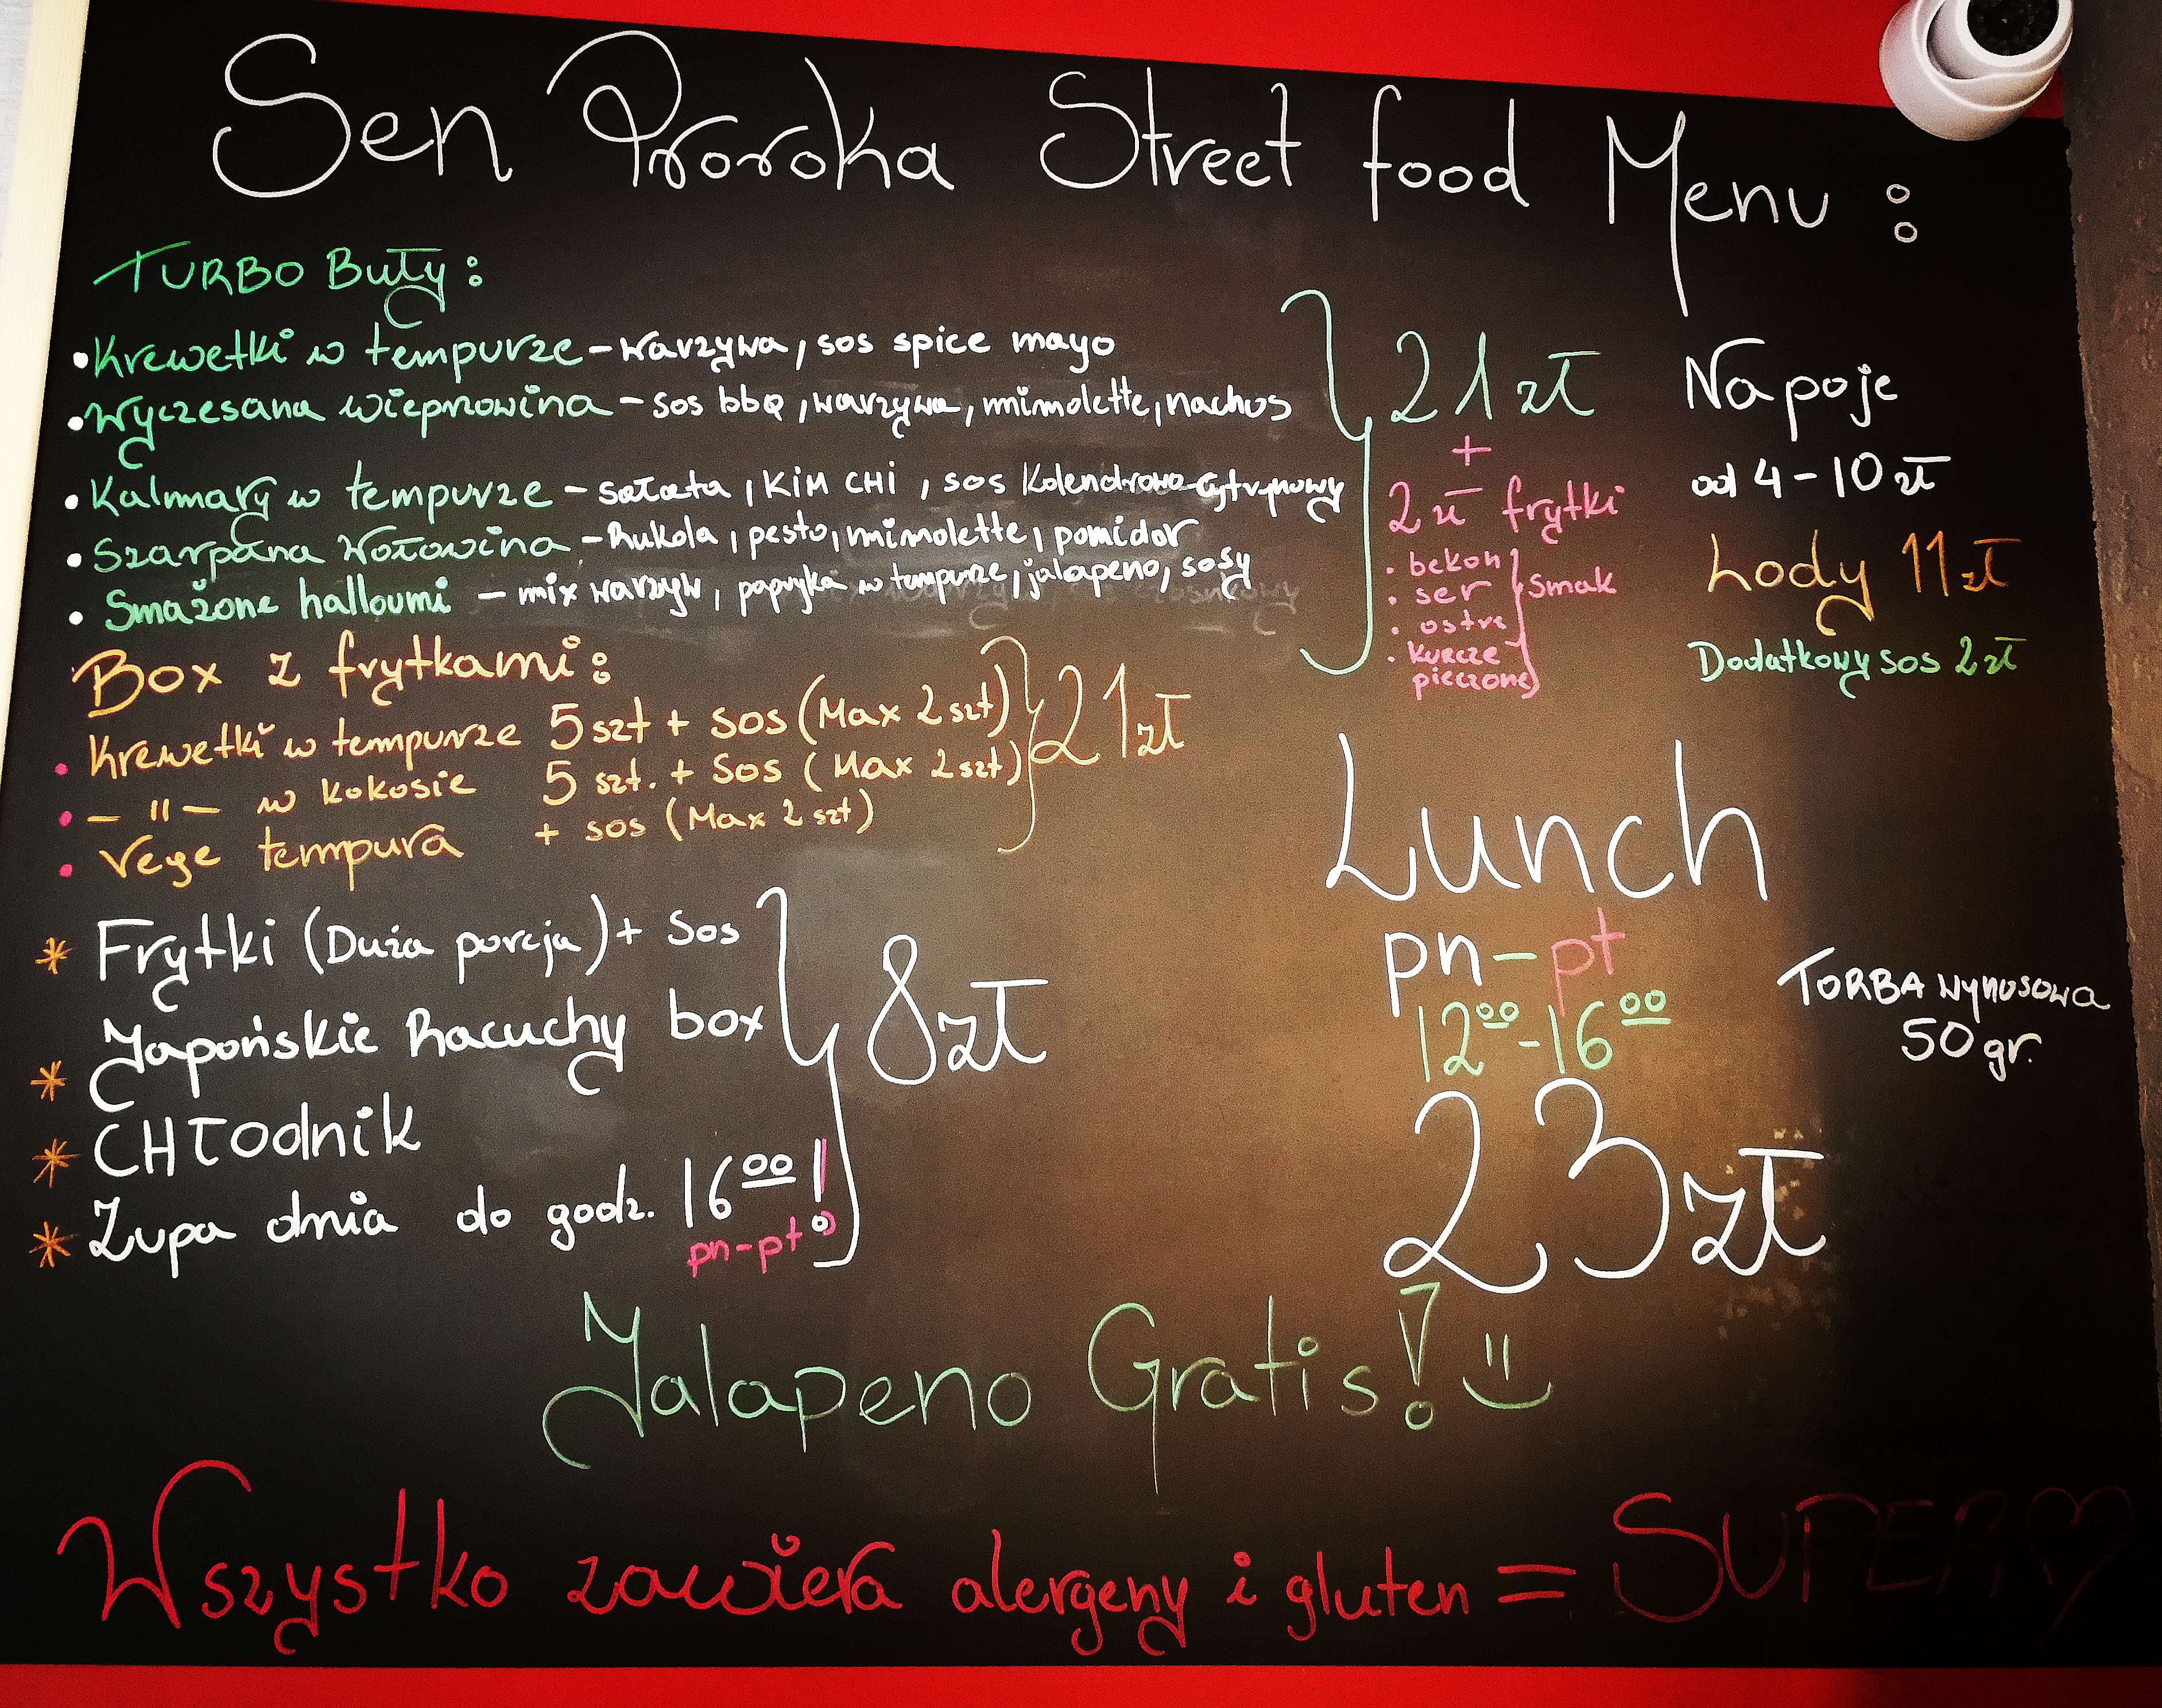 Sen Proroka Street food Menu :
TURBO Buły :
• Krewetki w tempurze – warzywa, sos spice mayo
• Wyczesana wieprzowina – sos bbq, warzywa, mimolette, nachos
• Kalmary w tempurze – sałata, KIM CHI, sos Kolendrowo-cytrynowy
• Szarpana Wołowina – Rukola, pesto, mimolette, pomidor
• Smażone halloumi – mix warzyw, papryka w tempurze, jalapeno, sosy
21 zł
+
2 zł frytki
• bekon
• ser
• ostre
• kurcze
pieczone
smak
Napoje
od 4 - 10 zł
Lody 11 zł
Dodatkowy sos 2 zł
Box z frytkami :
• Krewetki w tempurze 5 szt + sos (Max 2 szt)
• – " – w kokosie 5 szt. + sos (Max 2 szt)
• Vege tempura + sos (Max 2 szt)
21 zł
* Frytki (Duża porcja) + Sos
* Japońskie Racuchy box
* CHłodnik
* Zupa dnia do godz. 16⁰⁰ !
pn-pt
8 zł
Lunch
pn – pt
12⁰⁰ - 16⁰⁰
23 zł
TORBA wynosowa
50 gr.
Jalapeno Gratis!
Wszystko zawiera alergeny i gluten = SUPER ♡